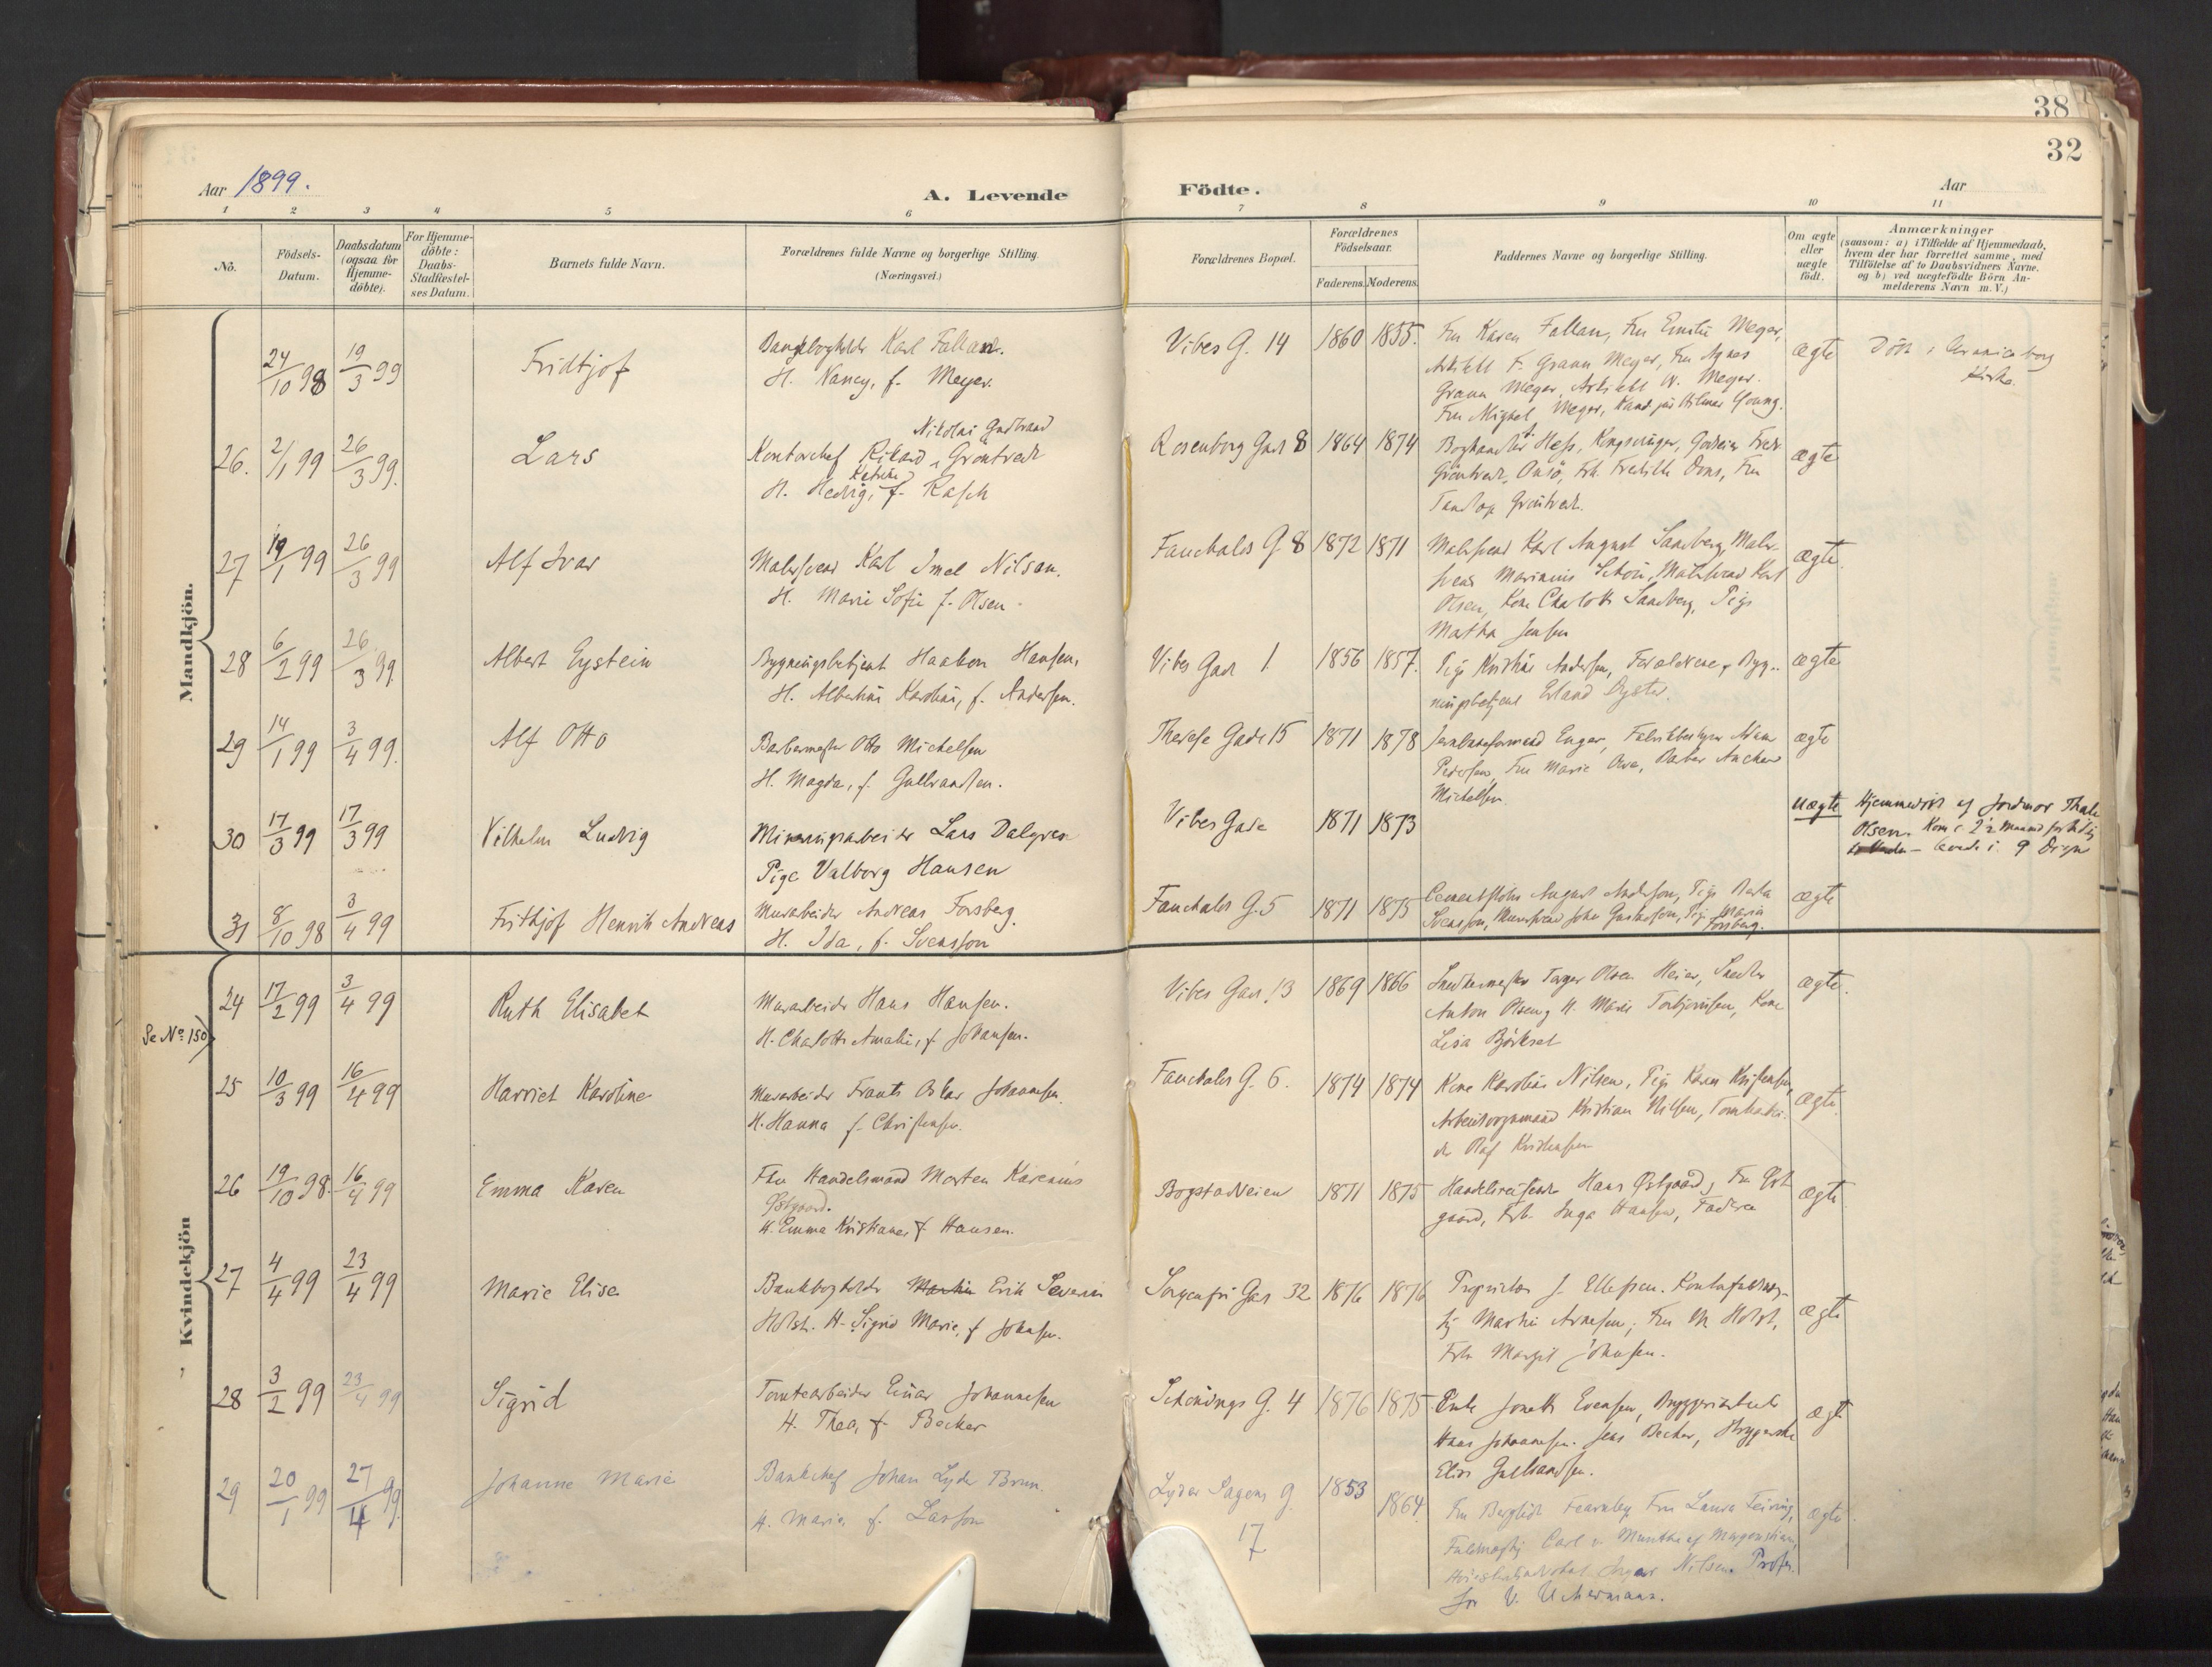 38
32
Aar 1899.
A. Levende
Födte.
Aar
1 2 3 4 5 6 7 8 9 10 11
No.
Födsels-Datum.
Daabsdatum (ogsaa for Hjemme-döbte).
For Hjemme-döbte: Daabs-Stadfæstel-ses Datum.
Barnets fulde Navn.
Forældrenes fulde Navne og borgerlige Stilling.
(Næringsvei.)
Forældrenes Bopæl.
Forældrenes Födselsaar.
Faderens. Moderens.
Faddernes Navne og borgerlige Stilling.
Om ægte eller uægte födt.
Anmærkninger
(saasom: a) i Tilfælde af Hjemmedaab,
hvem der har forrettet samme, med
Tilföielse af to Daabsvidners Navne.
og b) ved uægtefödte Börn An-
melderens Navn m. V.)
Mandkjön.
24/10 98 19/3 99 Fridtjof
Karl Fallan.
H. Nancy, f. Meyer.
Vibes G. 14 1860 1855.
Fru Karen Fallan, Fru Emilie Meyer,
F. Grann Meyer, Fru Agnes
Grann Meyer, Arkitekt W. Meyer.
Meyer, Kand. jur. Hilmar Young.
ægte
Kirke.
26. 2/1 99 26/3 99. Lars
Nikolai Gudbrand
Kontorchef Rikard Gröntvedt
Katrine
H. Hedvig, f. Rasch
Rosenborg Gad 8 1864 1874
Hess, Kongsvinger,
Gröntvedt, Onsö, Frk. Fredikke Dons, Fru
Gröntvedt.
ægte
27 19/1 99 26/3 99 Alf Ivar
Malersvend Karl Emil Nilsen.
H. Marie Sofie f. Olsen
Fauchalds G. 8 1872 1871
Malersvend Karl August Sandberg, Maler-
svend Marinius Schou, Malersvend Karl
Olsen, Kone Charlotte Sandberg, Pige
Martha Jensen
ægte.
28 6/2 99 26/3 99. Albert Eystein
Bygningsbetjent Haakon Hansen,
H. Albertine Karoline, f. Andersen.
Vibes Gad 1 1856 1857.
Pige Kristine Andersen, Forældrene, Byg-
ningsbetjent Erland
ægte
29 14/1 99 3/4 99. Alf Otto
Barbermester Otto Michelsen
H. Magda, f. Gulbrandsen.
Therese Gade 15 1871 1878
Enger, Fabrikbestyrer
Pedersen, Fru Marie
Michelsen.
ægte
30 17/3 99 17/3 99 Vilhelm Ludvig
Mineringsarbeider Lars Dalgren
Pige Valborg Hansen
Vibes Gade 1871 1873
uægte
Hjemmedöbt af Jordmor Thale
Olsen. Kom 2½ Maaned for tidlig
levede i 9
31 8/10 98 3/4 99 Frithjof Henrik Andreas
Murarbeider Andreas Forsberg.
H. Ida, f. Svensson
Fauchalds G. 5 1871 1875
Cementstöber August Anderson, Pige Berta
Svensson, Murersvend John Gustafson, Pige Maria
Forsberg.
ægte
Kvindekjön
Se No 150
24 17/2 99 3/4 99 Ruth Elisabet
Murarbeider Hans Hansen.
H. Charlotte Amalie, f. Johansen.
Vibes Gad 13 1869 1866
Snedkermester Torger Olsen Heier, Snedker
Anton Olsen, H. Marie Torbjörnsen, Kone
Lisa Björkset
ægte.
25 10/3 99 16/4 99 Harriet Karoline
Murarbeider Frants Oskar Johannesen.
H. Hanna f. Christensen.
Fauchalds G. 6. 1874 1874
Kone Karoline Nilsen, Pige Karen Kristensen,
Arbeidsformand Kristian Nilsen, Tomtearbei-
der Olaf Kristensen
ægte.
26 19/10 98. 16/4 99 Emma Karen
Fhv Handelsmand Morten Karenius
Østgaard.
H. Emma Kristiane, f. Hansen.
Bogstadveien 1871 1875
Handelsreisende Hans Østgaard, Fru Øst
gaard, Frk. Inga Hansen, Faderen
ægte
27 4/4 99 23/4 99 Marie Elise
Bankbogholder Erik Severin
Holst. H. Sigrid Marie, f. Johnsen.
Sorgenfri Gad 32 1876 1876
Proprietær J. Ellefsen. Kontorfuldmæg-
tig Martin Arnesen, Fru M. Holst,
Frk. Margit Johnsen.
ægte
28 3/2 99 23/4 99 Sigrid
Tomtearbeider Einar Johannesen
H. Thea, f. Becker
Schönings G. 4 1876 1875
Enke Jonette Evensen, Bryggeriarbeider
Hans Johannesen. Jens Becker, Strygerske
Elise Gulbrandsen.
ægte
29 20/1 99 27/4 99. Johanne Marie
Bankchef Johan Lyder Brun.
H. Marie, f. Larson
Lyder Sagens G.
17
1853 1864.
Fru Bergliot Fearnley, Fru Laura
Fuldmægtig Carl v. Munthe af Morgenstierne,
Nilsen. Profes-
sor V. Uchermann.
ægte